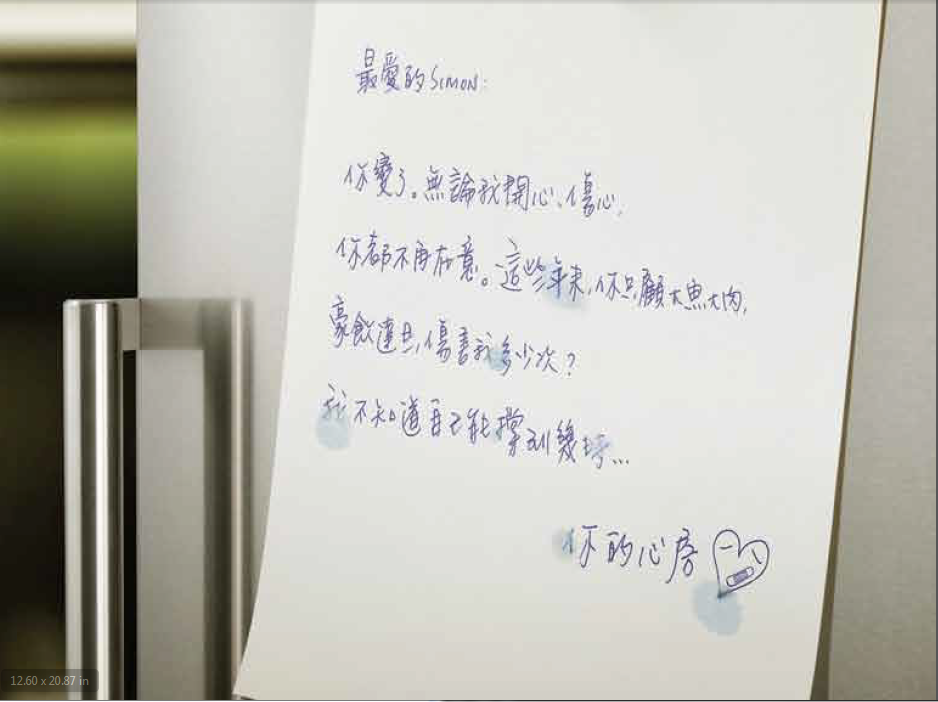 最愛的SIMON:
你變了。無論我開心、傷心,
你都不再在意。這些年來,你只顧大魚大肉,
豪飲連旦,傷害我多少次?
我不知道自己能撐到幾時...
你的心房
12.60 x 20.87 in